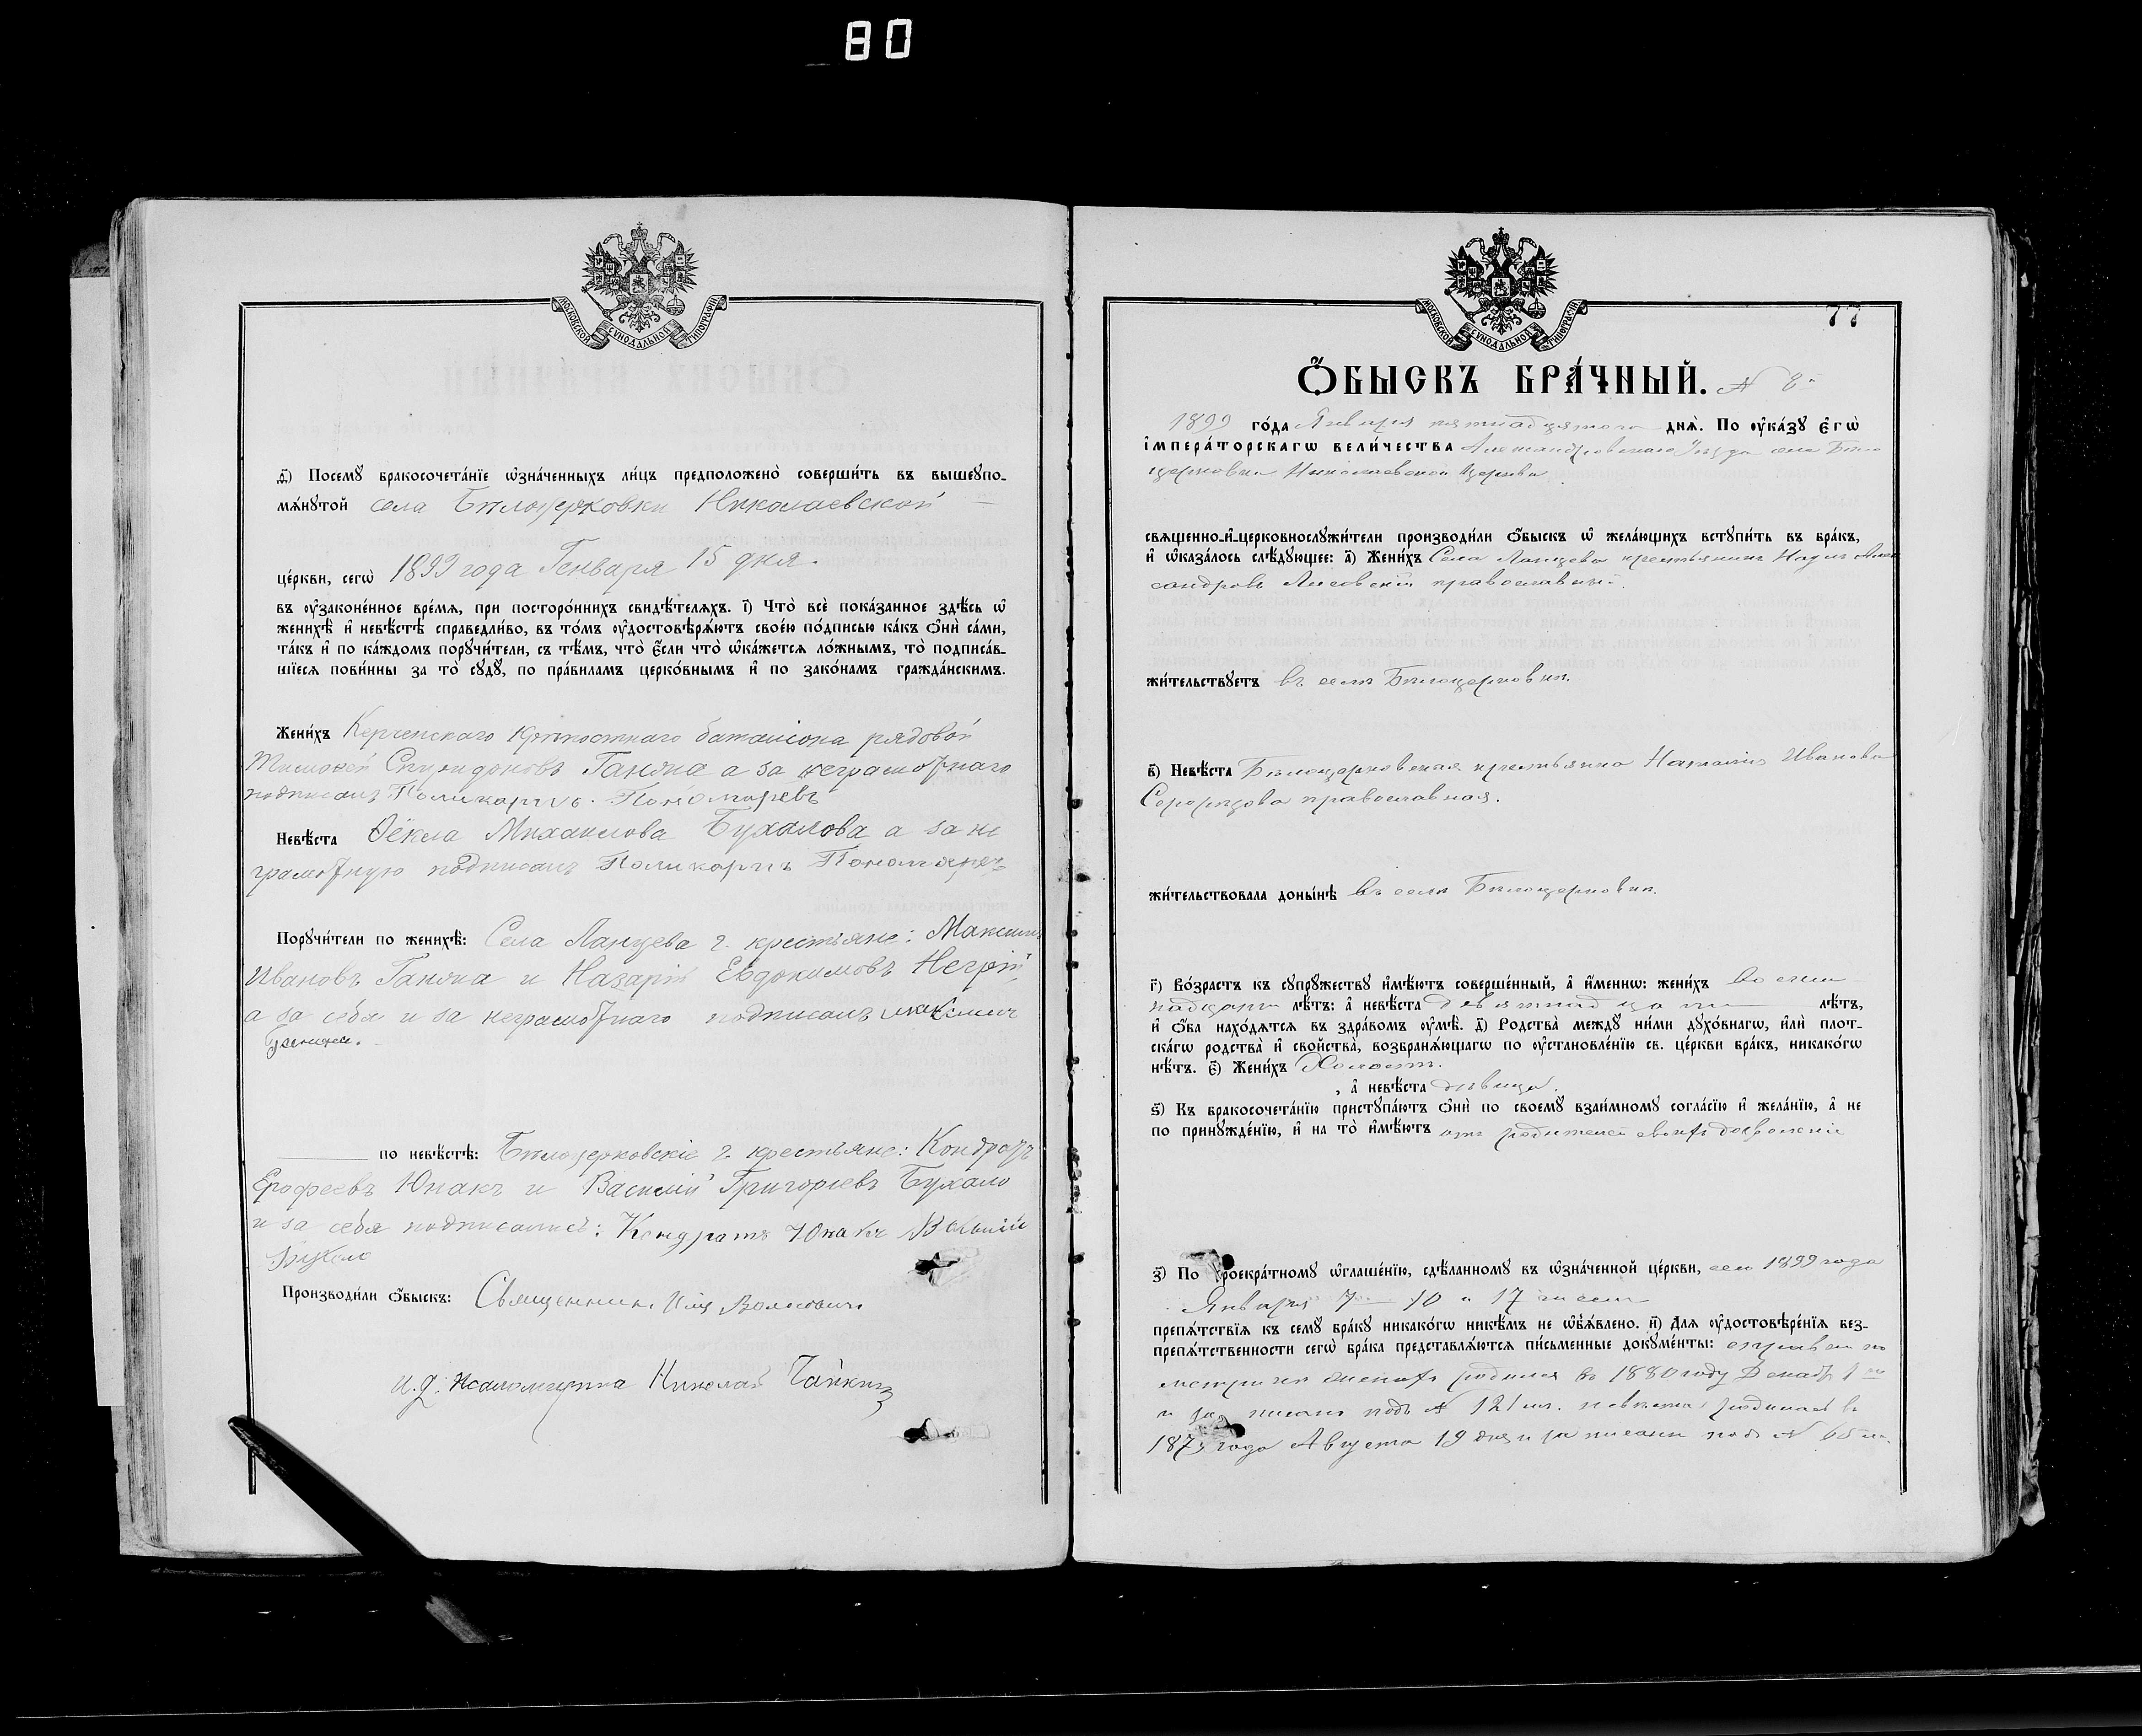 80
МОСКОВСКОЙ СѴНОДАЛЬНОЙ ТИПОГРАФІИ
ѳ҃) Посемꙋ бракосочета́нїе ѡ҆зна́ченныхъ ли́цъ предположено̀ соверши́ть въ вышеꙋпо-
мѧ́нꙋтой села Бѣлоцерковки Николаевской
це́ркви, сегѡ̀ 1899 года Генваря 15 дня.
въ ᲂу҆зако́ненное вре́мѧ, при посторо́ннихъ свидѣ́телѧхъ. і҃) Что̀ всѐ пока́занное здѣ́сь ѡ҆
женихѣ̀ и҆ невѣ́стѣ справедли́во, въ то́мъ ᲂу҆достовѣрѧ́ютъ свое́ю по́дписью ка́къ ѻ҆нѝ са́ми,
та́къ и҆ по ка́ждомъ порꙋчи́тели, съ тѣ́мъ, что̀ є҆́сли что̀ ѡ҆ка́жетсѧ ло́жнымъ, то̀ подписа́в-
шїесѧ пови́нны за то̀ сꙋдꙋ̀, по пра́виламъ церко́внымъ и҆ по зако́намъ гражда́нскимъ.
Жени́хъ Керченскаго крѣпостнаго баталіона рядовой
Тимофей Спиридоновъ Ганжа а за неграмотнаго
подписалъ Поликарпъ Пономаревъ
Невѣ́ста Ѳекла Михаилова Бухалова а за не
грамотную подписалъ Поликарпъ Пономаревъ
Порꙋчи́тели по женихѣ̀: Села Ланцева г. крестьяне: Максимъ
Ивановъ Ганжа и Назарій Евдокимовъ Негрій,
а за себя и за неграмотнаго подписалъ Максимъ
Ганжа.
по невѣ́стѣ: Бѣлоцерковскіе г. крестьяне: Кондратъ
Ерофеевъ Юнакъ и Василій Григорьевъ Бухало
и за себя подписались: Кондратъ Юнакъ Василій
Бухало
Производи́ли ѻ҆́быскъ: Священникъ
и. д. псаломщика Николай Чайкинъ
МОСКОВСКОЙ СѴНОДАЛЬНОЙ ТИПОГРАФІИ
77
Ѻ҆́БЫСКЪ БРА́ЧНЫЙ. № 8
1899 го́да Января пятнадцатаго днѧ̀. По ᲂу҆ка́зꙋ є҆гѡ̀
і҆мпера́торскагѡ вели́чества Александровскаго уѣзда села Бѣло
церковки Николаевской церкви
свѧще́нно-и҆-церковнослꙋжи́тели производи́ли ѻ҆́быскъ ѡ҆ жела́ющихъ встꙋпи́ть въ бра́къ,
и҆ ѡ҆каза́лось слѣ́дꙋющее: а҃) Жени́хъ Села Ланцева крестьянинъ Алек
сандровъ Лисовскій православный.
жи́тельствꙋетъ въ селѣ Бѣлоцерковкѣ.
в҃) Невѣ́ста Бѣлоцерковская крестьянка Наталія Иванова
православная.
жи́тельствовала доны́нѣ въ селѣ Бѣлоцерковкѣ.
г҃) Во́зрастъ къ сꙋпрꙋ́жествꙋ и҆мѣ́ютъ соверше́нный, а҆ и҆́меннѡ: жени́хъ восем
надцати лѣ́тъ: а҆ невѣ́ста девятнадцати лѣ́тъ,
и҆ ѻ҆́ба нахо́дѧтсѧ въ здра́вомъ ᲂу҆мѣ̀. д҃) Родства̀ междꙋ̀ ни́ми дꙋхо́внагѡ, и҆лѝ плот-
ска́гѡ родства̀ и҆ сво́йства, возбранѧ́ющагѡ по ᲂу҆становле́нїю св. це́ркви бра́къ, никако́гѡ
нѣ́тъ. є҃) Жени́хъ Холостъ.
, а҆ невѣ́ста дѣвица.
ѕ҃) Къ бракосочета́нїю пристꙋпа́ютъ ѻ҆нѝ по своемꙋ̀ взаи́мномꙋ согла́сїю и҆ жела́нїю, а҆ не
по принꙋжде́нїю, и҆ на то̀ и҆мѣ́ютъ отъ родителей своихъ дозволеніе
з҃) По троекра́тномꙋ ѡ҆глаше́нїю, сдѣ́ланномꙋ въ ѡ҆зна́ченной це́ркви, сего 1899 года
Января 7 10 и 17 чисел
препѧ́тствїѧ къ семꙋ̀ бра́кꙋ никако́гѡ никѣ́мъ не ѡ҆б̾ѧ́влено. и҃) Длѧ ᲂу҆достовѣре́нїѧ без-
препѧ́тственности сегѡ̀ бра́ка представлѧ́ютсѧ пи́сьменные докꙋме́нты: справка по
метрикѣ женихъ родился въ 1880 году Декабр 1
и записанъ подъ № 121 м. невѣста родилась въ
187 года Августа 19 дня и записана подъ №